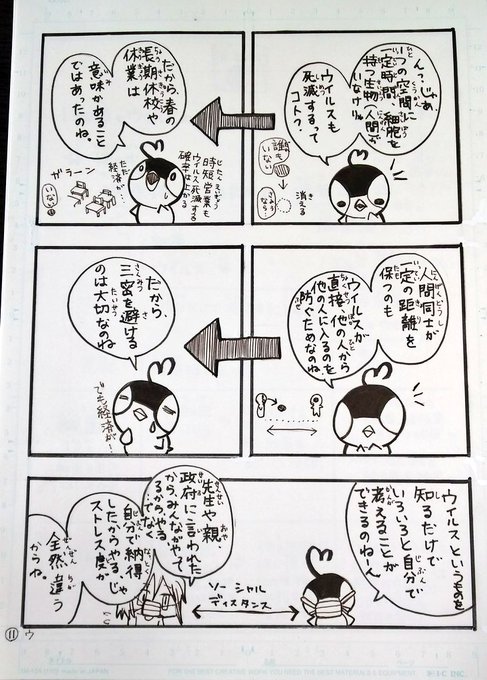 んっ？じゃあ、
１つの空間に
一定時間、細胞を
持つ生物、人間が
いなけりゃ
ウイルスも
死滅するって
コト？
誰も
いない
消える
さようなら〜
だから、春の
長期休校や
休業は
意味があること
ではあったのね。
じたくえいぎょう
時短営業も
ウイルス死滅する
確率は上がる
ただ
経済が…
ガラーン
いない
人間同士が
一定の距離を
保つのも
ウイルスが
直接他の人から
他の人に入るのを、
防ぐためなのね。
だから、
三密を避ける
のは大切なのね
でも経済が！
ウイルスというものを
知るだけで
いろいろと自分で
考えることが
できるのねーん
先生や親、
政府に言われた
から、みんながやって
るからやる
…でなく
自分で納得
したからやる、じゃ
ストレス度が
全然違う
からね。
ソーシャル
ディスタンス
⑪ ウ
MADE IN JAPAN
FOR THE BEST CREATIVE WORK YOU NEED THE BEST MATERIALS & EQUIPMENT.
I-C INC.